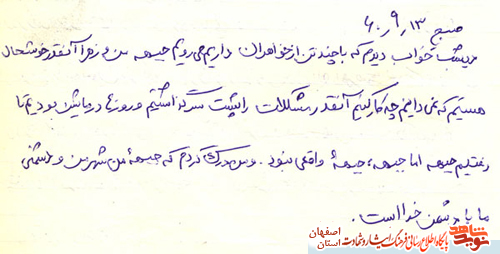 صبح ۶۰٫۹٫۱۳
دیشب خواب دیدم که با چند تن از خواهران داریم می رویم جبهه من و زهرا آنقدر خوشحال
هستیم که نمی دانیم چه کار کنیم آنقدر مشکلات را پشت سر گذاشتیم و روزها در مایش بودیم تا
رفتیم جبهه اما جبهه، جبهۀ واقعی نبود. ومن درک کردم که جبهۀ من شهر من و دشمنی
ما با دشمن خدا است.
نوید شاهد
پایگاه اطلاع رسانی فرهنگ ایثار و شهادت
استان اصفهان